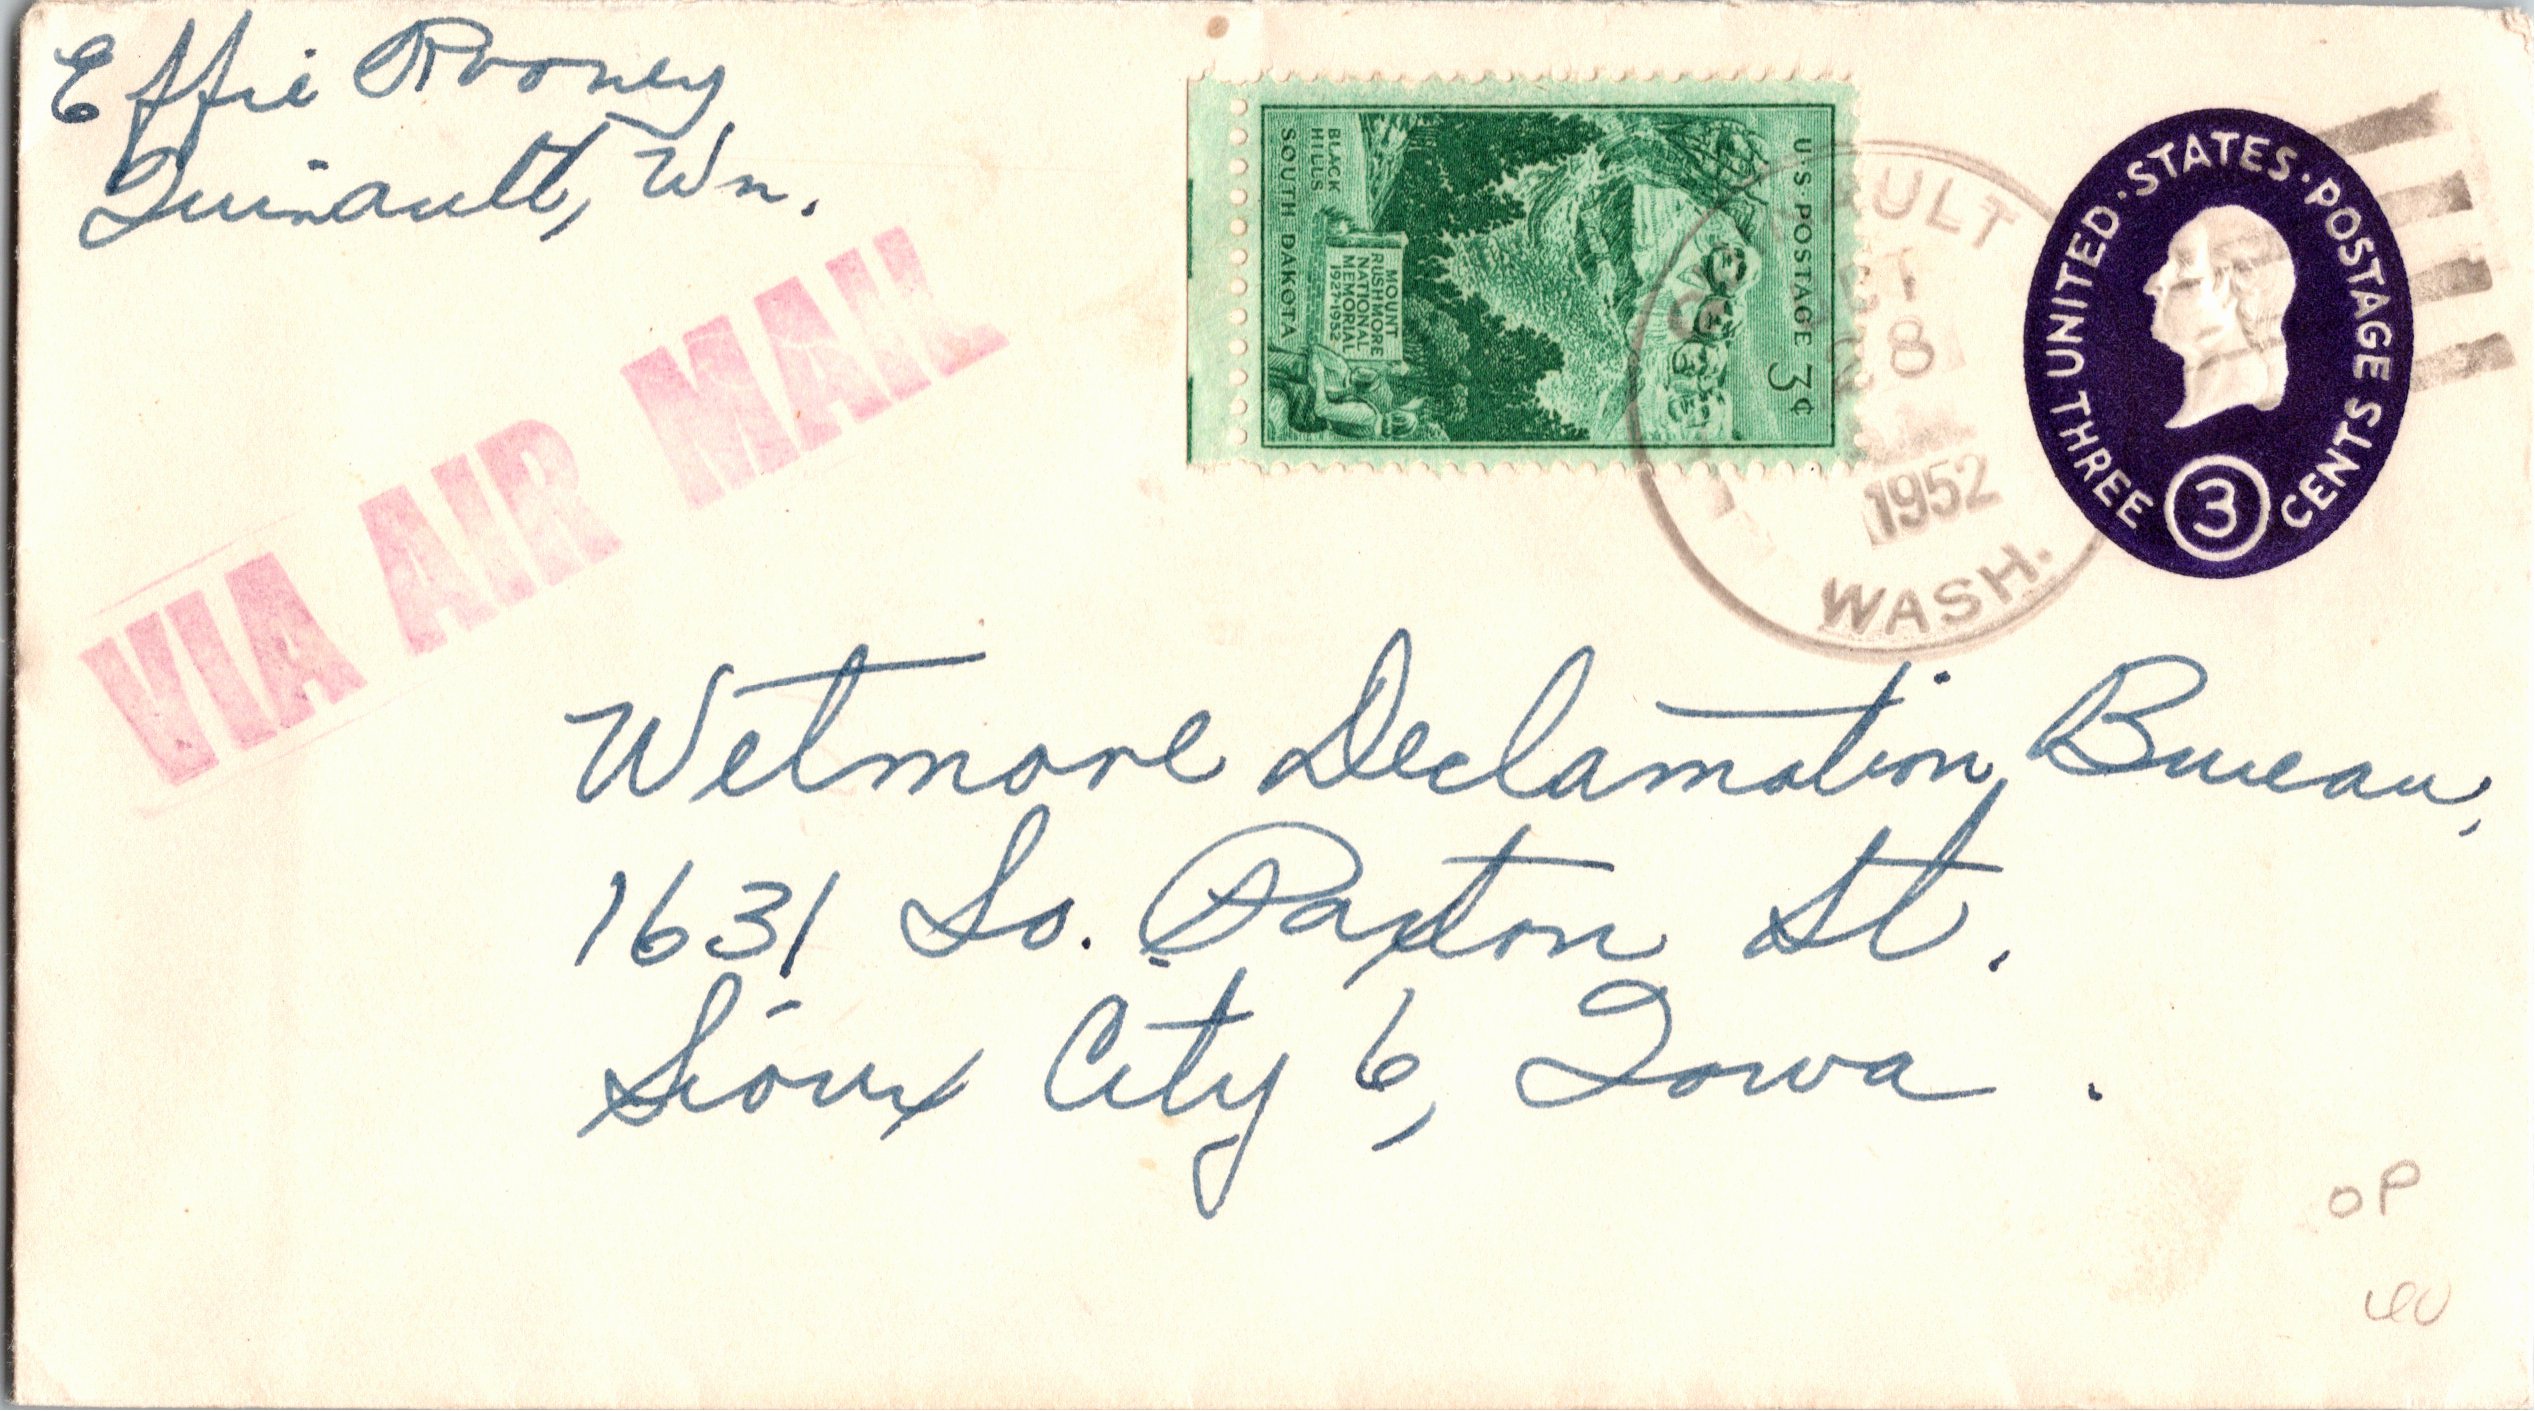 Effie Rooney
Quinault, Wn.
VIA AIR MAIL
U.S. POSTAGE 3¢
MOUNT
RUSHMORE
NATIONAL
MEMORIAL
1927-1952
BLACK
HILLS
SOUTH DAKOTA
28
1952
WASH.
UNITED · STATES · POSTAGE
THREE 3 CENTS
Wetmore Declamation Bureau,
1631 So. Paxton St.
Sioux City 6, Iowa.
OP